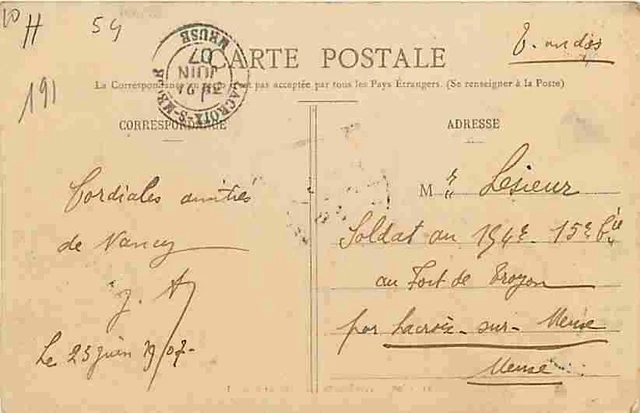 H
54
191
T. an dos
CARTE POSTALE
La Correspondance pas acceptée par tous les Pays Étrangers. (Se renseigner à la Poste)
LACROIX-S-MEUSE
JUIN
07
MEUSE
CORRESPONDANCE
Cordiales amitiés
de Nancy
J. A
Le 23 juin 1907-
ADRESSE
M r Lesieur
Soldat au 154e 15e Cie
au Fort de Troyon
par Lacroix-sur-Meuse
Meuse